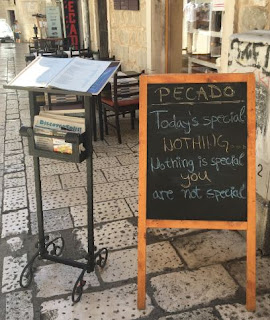 PECADO
PECADO
Today's special
NOTHING...
Nothing is special
you
are not special